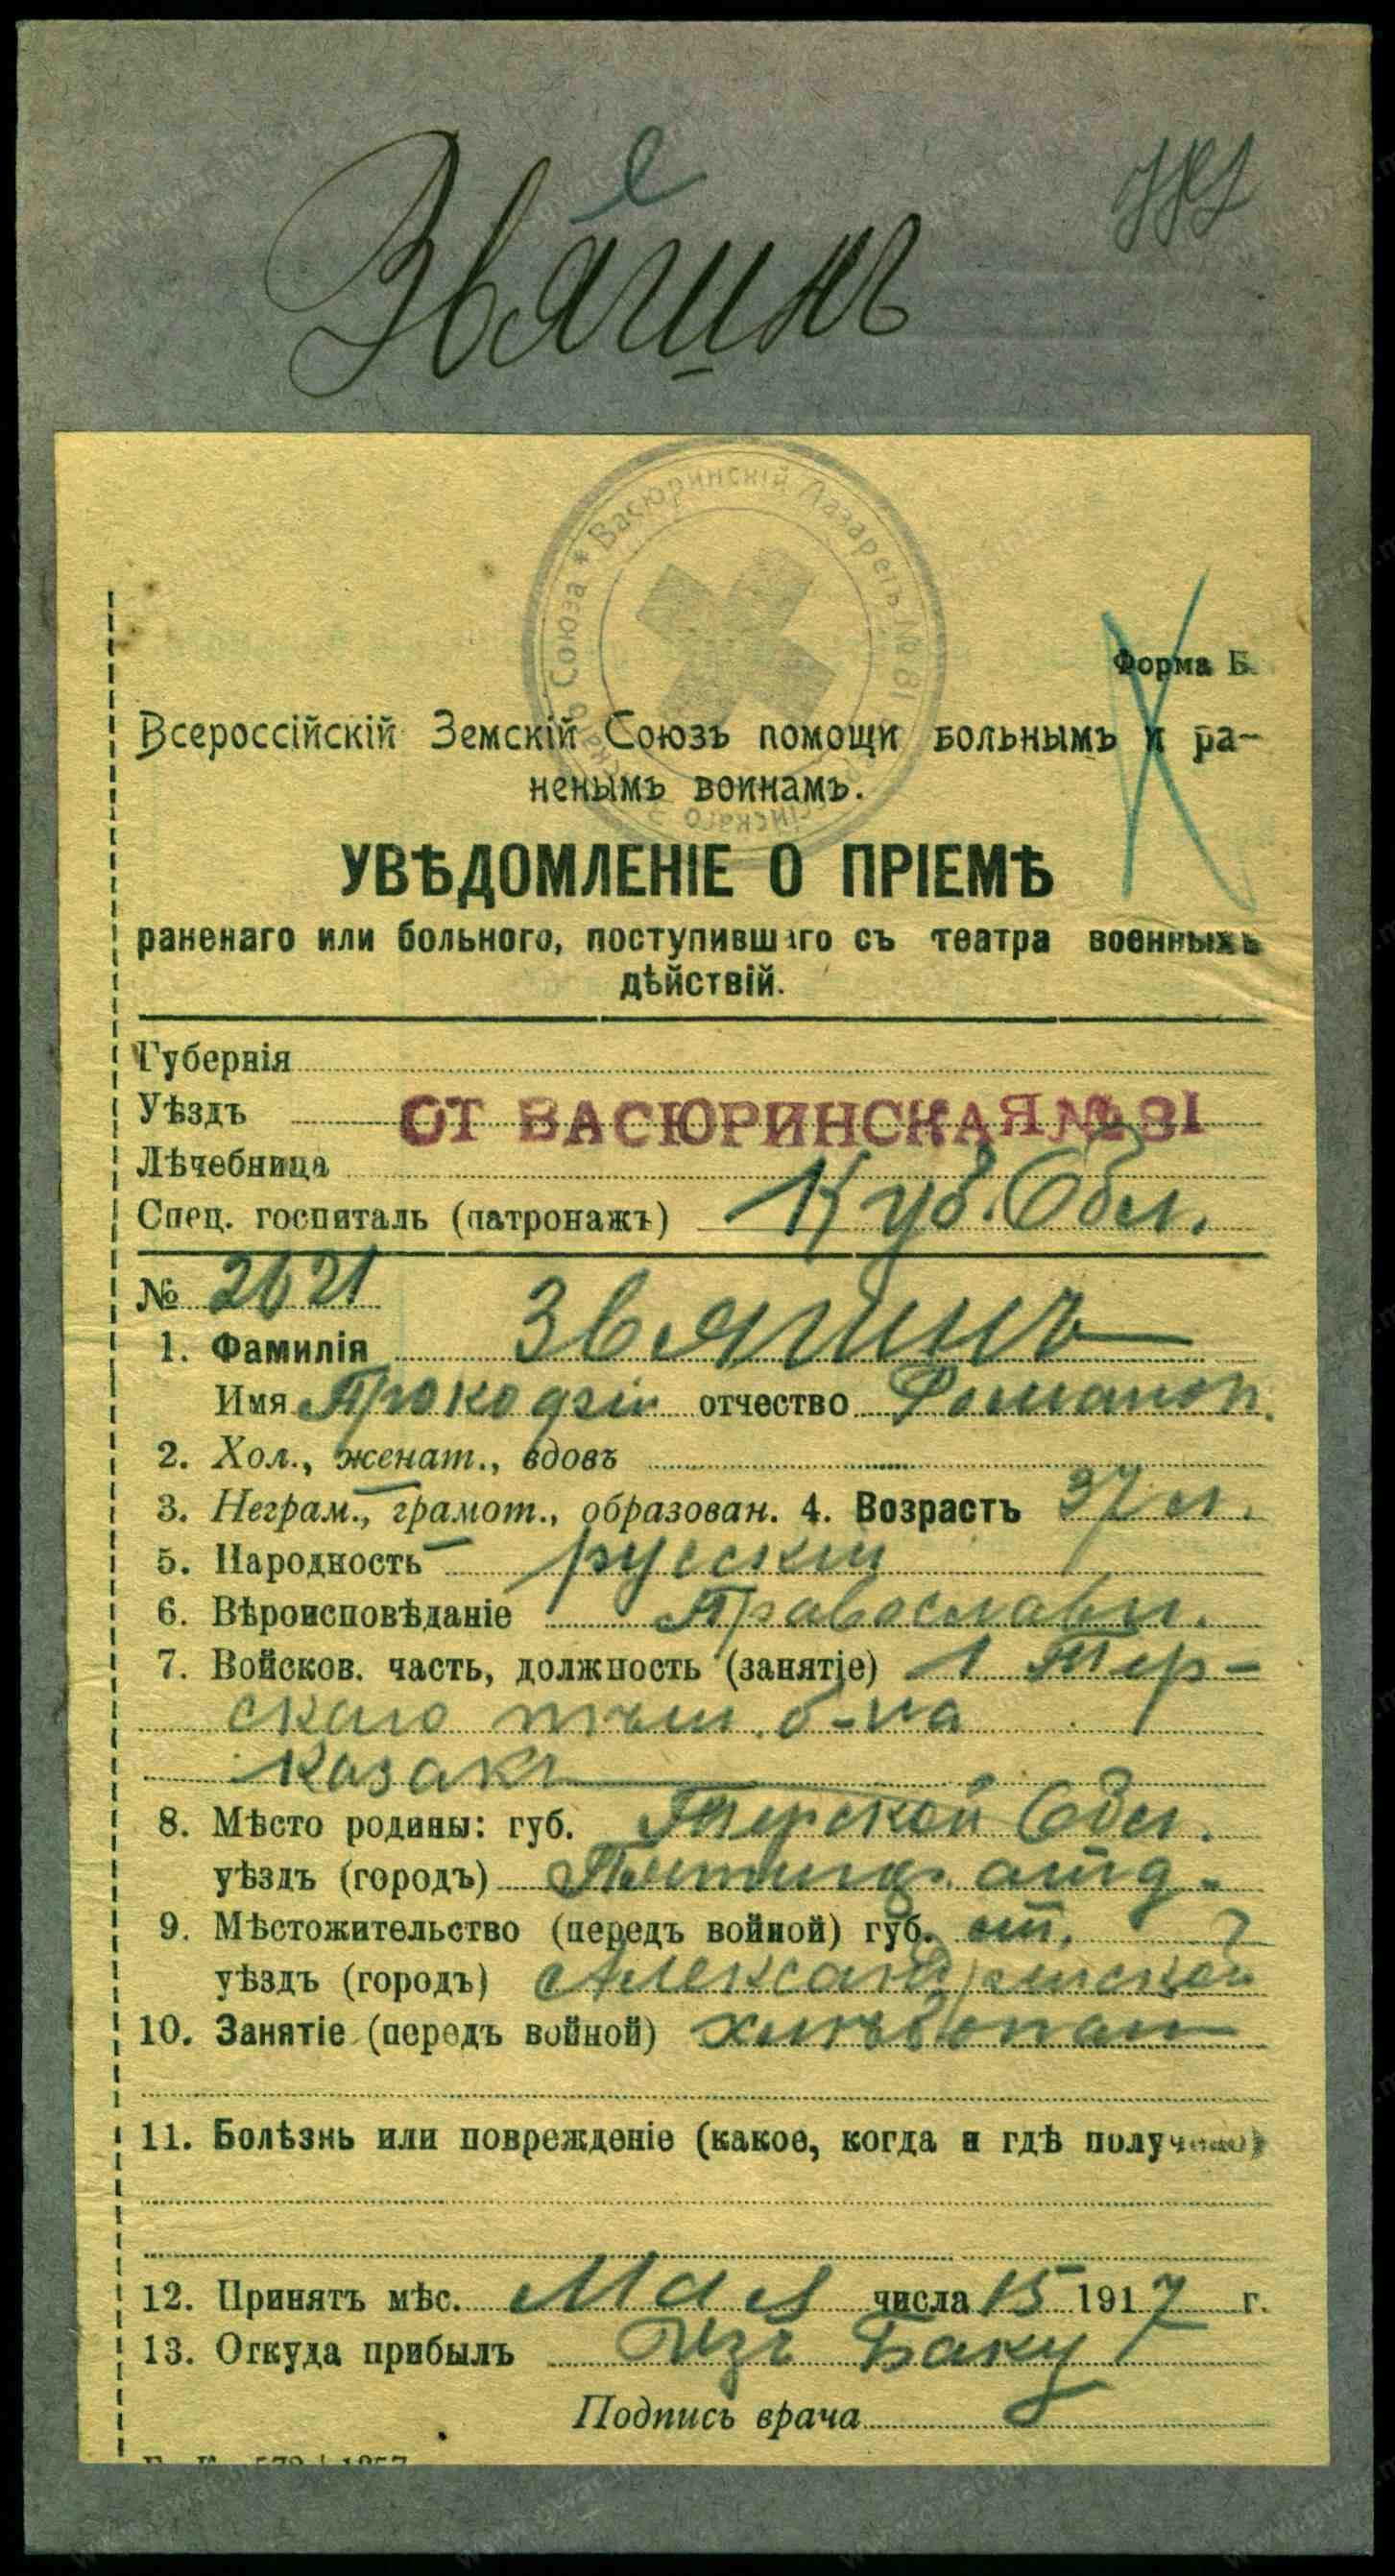 е
Звягинъ
Всероссійскаго Земскаго Союза * Васюринскій Лазаретъ № 81
Форма Б.
Всероссійскій Земскій Союзъ помощи больнымъ и ра-
ненымъ воинамъ.
УВѢДОМЛЕНІЕ О ПРІЕМѢ
раненаго или больного, поступившаго съ театра военныхъ
дѣйствій.
Губернія
Уѣздъ ОТ ВАСЮРИНСКАЯ № 81
Лѣчебница
Спец. госпиталь (патронажъ) Куб. Обл.
№ 2621
1. Фамилія Звягинъ
Имя Прокофій отчество Романов.
2. Хол., женат., вдовъ
3. Неграм., грамот., образован. 4. Возрастъ 37 л.
5. Народность русскій
6. Вѣроисповѣданіе Православн.
7. Войсков. часть, должность (занятіе) 1 Тер-
скаго плас. б-на
Казакъ
8. Мѣсто родины: губ. Терской Обл.
уѣздъ (городъ) Пятигор. отд.
9. Мѣстожительство (передъ войной) губ. ст.
уѣздъ (городъ) Александрійской
10. Занятіе (передъ войной) хлѣбопаш
11. Болѣзнь или поврежденіе (какое, когда и гдѣ получено)
12. Принятъ мѣс. Мая числа 15 1917 г.
13. Откуда прибылъ Изъ Баку
Подпись врача